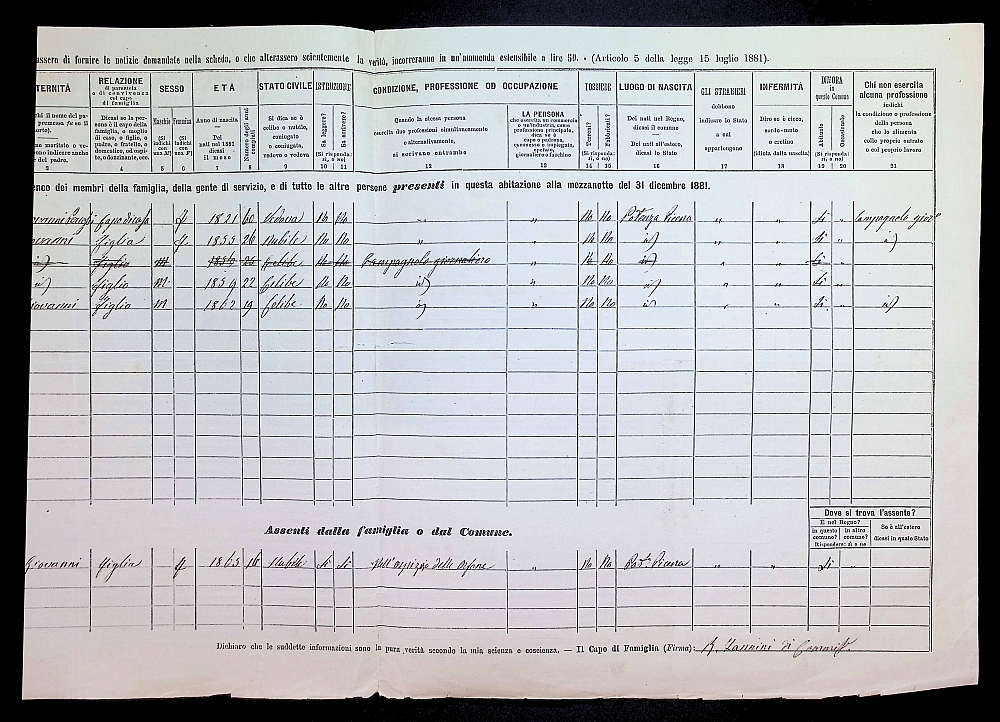 assero di fornire le notizie domandate nella scheda, o che alterassero scientemente la verità, incorreranno in un'ammenda estensibile a lire 50. - (Articolo 5 della legge 15 luglio 1881).
TERNITÀ
RELAZIONE
di parentela
o di convivenza
col capo
di famiglia
SESSO
ETÀ
STATO CIVILE
ISTRUZIONE
CONDIZIONE, PROFESSIONE OD OCCUPAZIONE
POSSIEDE
LUOGO DI NASCITA
GLI STRANIERI
debbono
indicare lo Stato
a cui
appartengono
INFERMITÀ
DIMORA
in questo Comune
Chi non esercita
alcuna professione
indichi
la condizione o professione
della persona
che lo alimenta
colle proprie entrate
o col proprio lavoro
Dicasi se la per-
sona è il capo della
famiglia, o moglie
di esso, o figlio, o
padre, o fratello, o
domestico, od ospi-
te, o dozzinante, ecc.
Maschio
(Si indichi con una M)
Femmina
(Si indichi con una F)
Anno di nascita
Pei
nati nel 1881
dicasi
il mese
Numero degli anni compiuti
Si dica se è
celibe o nubile,
coniugato
o coniugata,
vedovo o vedova
Sa leggere?
Sa scrivere?
(Si risponda: sì, o no)
Quando la stessa persona
esercita due professioni simultaneamente
o alternativamente,
si scrivano entrambe
LA PERSONA
che esercita un commercio
o un'industria, come
professione principale,
dica se è
capo o padrone,
commesso o impiegato,
operaio,
giornaliero o facchino
Terreni?
Fabbricati?
(Si risponda: sì, o no)
Dei nati nel Regno,
dicasi il comune
Dei nati all'estero,
dicasi lo Stato
Dire se è cieco,
sordo-muto
o cretino
(idiota dalla nascita)
Abituale
Occasionale
(Si risponda: sì, o no)
3 4 5 6 7 8 9 10 11 12 13 14 15 16 17 18 19 20 21
enco dei membri della famiglia, della gente di servizio, e di tutte le altre persone presenti in questa abitazione alla mezzanotte del 31 dicembre 1881.
Capo di casa f 1821 60 Vedova No No " " No No Potenza Picena " " Si " Campagnolo gior
Figlia f 1855 26 Nubile No No " " No No id " " Si " id
id Figlio m 1856 25 Celibe No No Campagnolo giornaliero " No No id " " Si "
id Figlio m 1859 22 Celibe No No id " No No id " " Si "
Giovanni Figlio m 1862 19 Celibe No No id " No No id " " Si " id
Assenti dalla famiglia o dal Comune.
Dove si trova l'assente?
È nel Regno?
in questo comune?
in altro comune?
Rispondere: sì o no
Se è all'estero
dicasi in quale Stato
Giovanni Figlia f 1865 16 Nubile Si Si Nell'Ospizio delle Orfane " No No Pot. Picena " " Si "
Dichiaro che le suddette informazioni sono la pura verità secondo la mia scienza e coscienza. — Il Capo di Famiglia (Firma):